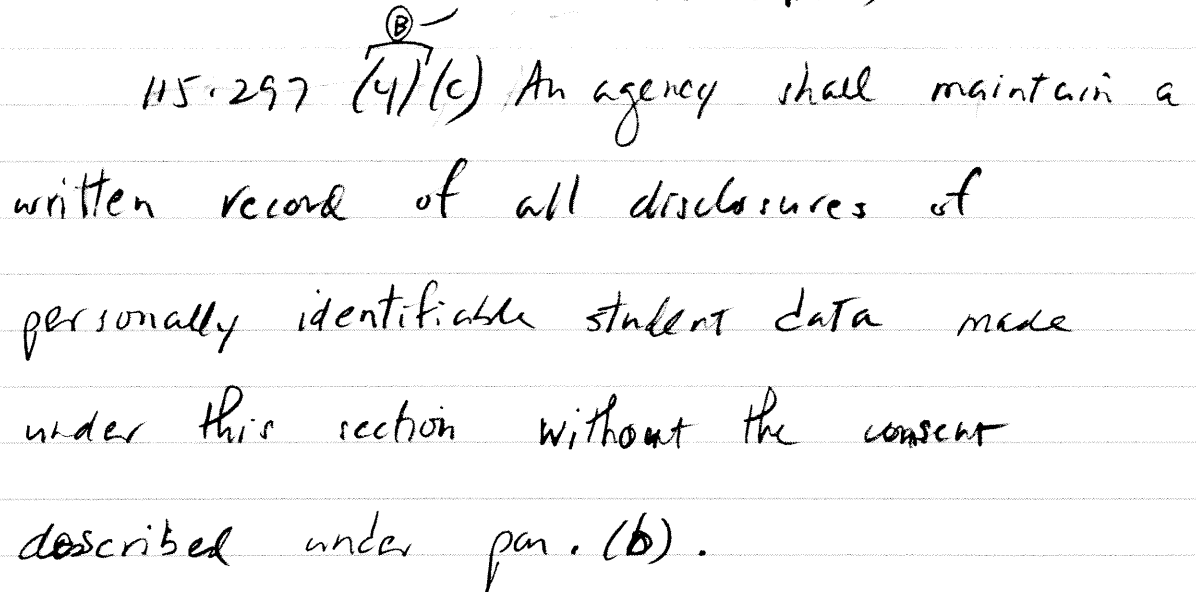 B
115.297 (4)(c) An agency shall maintain a
written record of all disclosures of
personally identifiable student data made
under this section without the consent
described under par. (b).